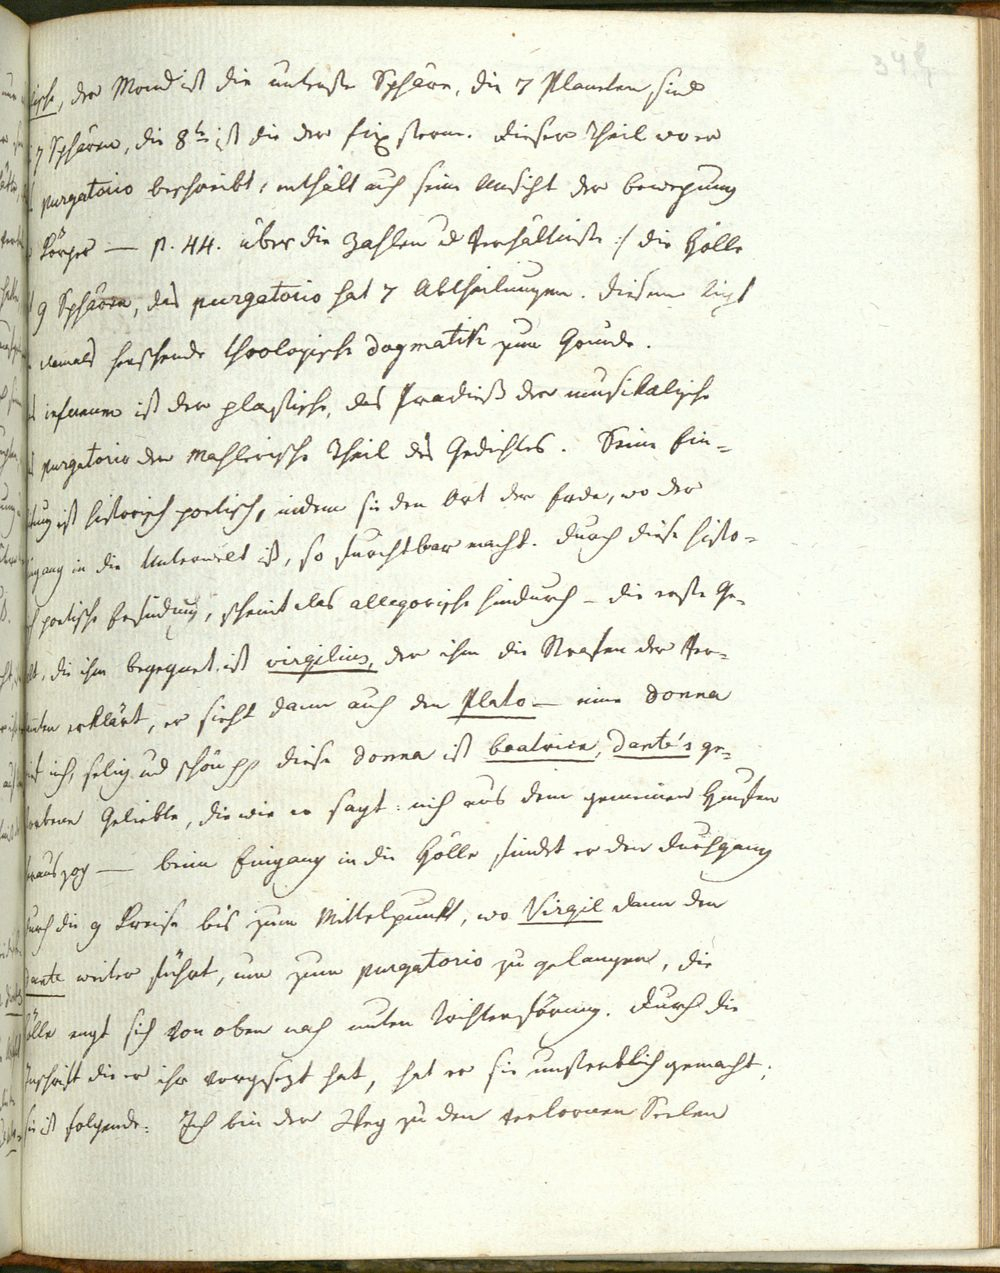 34
der Mond ist die unterste Sphäre, die 7 Planeten sind
7 Sphären, die 8te ist die der Fixsterne. dieser Theil wo er
purgatorio beschreibt, enthält auch seine Ansicht der bewegung
Körper — p. 44. über die Zahlen Verhältniße :/ die Hölle
9 Sphären, das purgatorio hat 7 Abtheilungen. diesem ligt
damals herschende theologische dogmatik zum Grunde.
infernum ist der plastische, das Pradieß der musikalische
purgatorio der mahlerische Theil des Gedichtes. Seine Ein-
ist historisch poetisch, indem sie den Ort der Erde, wo der
in die Unterwelt ist, so furchtbar macht. durch diese histo-
poetische Erfindung, scheint das allegorische hindurch – die erste Ge-
die ihm begegnet, ist virgilius, der ihm die Strafen der Ver-
erklärt, er sieht dann auch den Plato — eine donna
ich, selig und schön pp diese donna ist beatrice, dante's ge-
Geliebte, die wie er sagt: mich aus dem gemeinen Haufen
herauszog — beim Eingang in die Hölle findet er den durchgang
durch die 9 Kreise bis zum Mittelpunkt, wo Virgil dann den
dante weiter führt, um zum purgatorio zu gelangen, die
Hölle engt sich von oben nach unten trichterförmig. Durch die
Inschrift die er ihr vorgesezt hat, hat er sie unsterblich gemacht;
sie ist folgende: Ich bin der Weg zu den verlornen Seelen